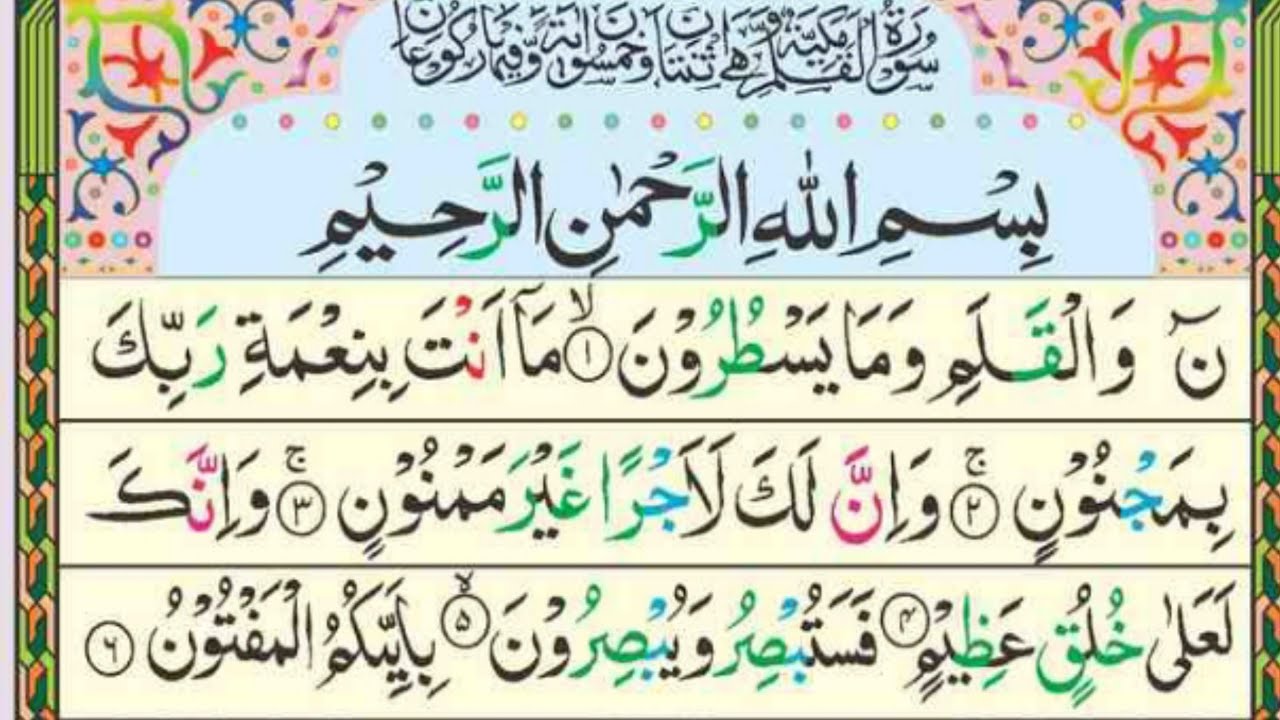 سُوْرَةُ الْقَلَمِ مَكِّيَّةٌ وَّهِيَ اثْنَتَانِ وَخَمْسُوْنَ اٰيَةً وَّفِيْهَا رُكُوْعَانِ
بِسْمِ اللّٰهِ الرَّحْمٰنِ الرَّحِيْمِ
نٓ وَالْقَلَمِ وَمَا يَسْطُرُوْنَ ۙ﴿۱﴾ مَاۤ اَنْتَ بِنِعْمَةِ رَبِّكَ
بِمَجْنُوْنٍ ۚ﴿۲﴾ وَاِنَّ لَكَ لَاَجْرًا غَيْرَ مَمْنُوْنٍ ۚ﴿۳﴾ وَاِنَّكَ
لَعَلٰى خُلُقٍ عَظِيْمٍ ﴿۴﴾ فَسَتُبْصِرُ وَيُبْصِرُوْنَ ۙ﴿۵﴾ بِاَيِّىكُمُ الْمَفْتُوْنُ ﴿۶﴾